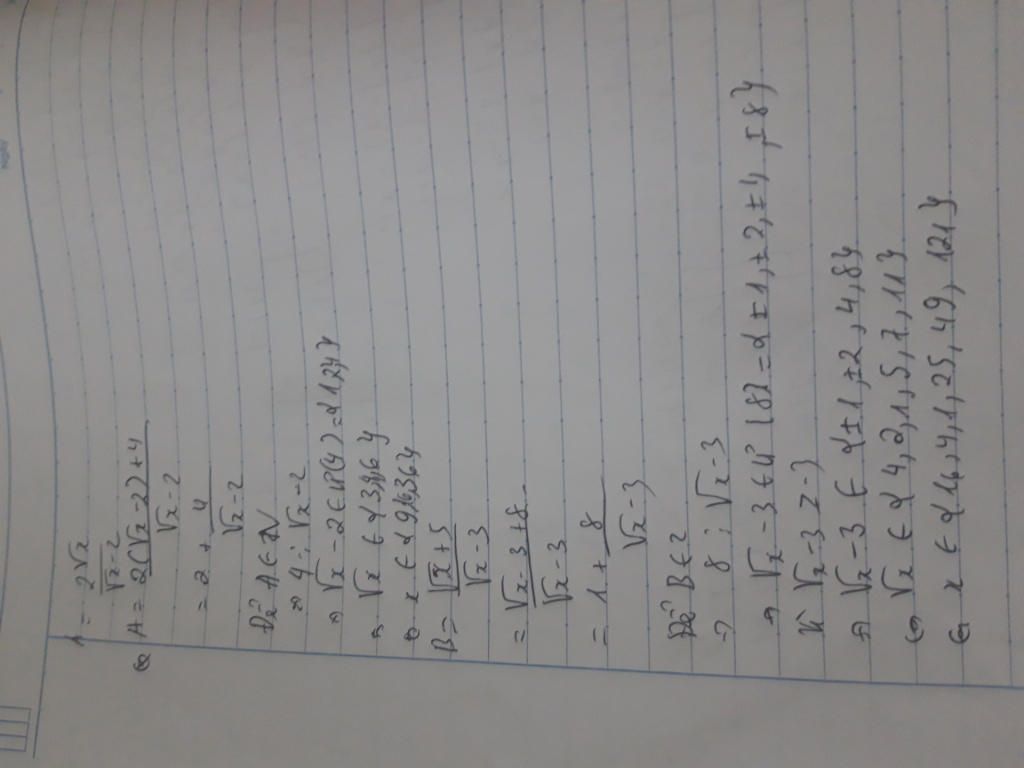 A = 2√x / √x-2
⇔ A = 2(√x-2)+4 / √x-2
= 2 + 4 / √x-2
Để A ∈ N
⇒ 4 ⋮ √x-2
⇒ √x-2 ∈ Ư(4) = {1,2,4}
⇒ √x ∈ {3,4,6}
⇔ x ∈ {9,16,36}
B = √x+5 / √x-3
= √x-3+8 / √x-3
= 1 + 8 / √x-3
Để B ∈ Z
⇒ 8 ⋮ √x-3
⇒ √x-3 ∈ Ư(8) = {±1,±2,±4,±8}
Vì √x-3 ≥ -3
⇒ √x-3 ∈ {±1,±2,4,8}
⇔ √x ∈ {4,2,1,5,7,11}
⇔ x ∈ {16,4,1,25,49,121}